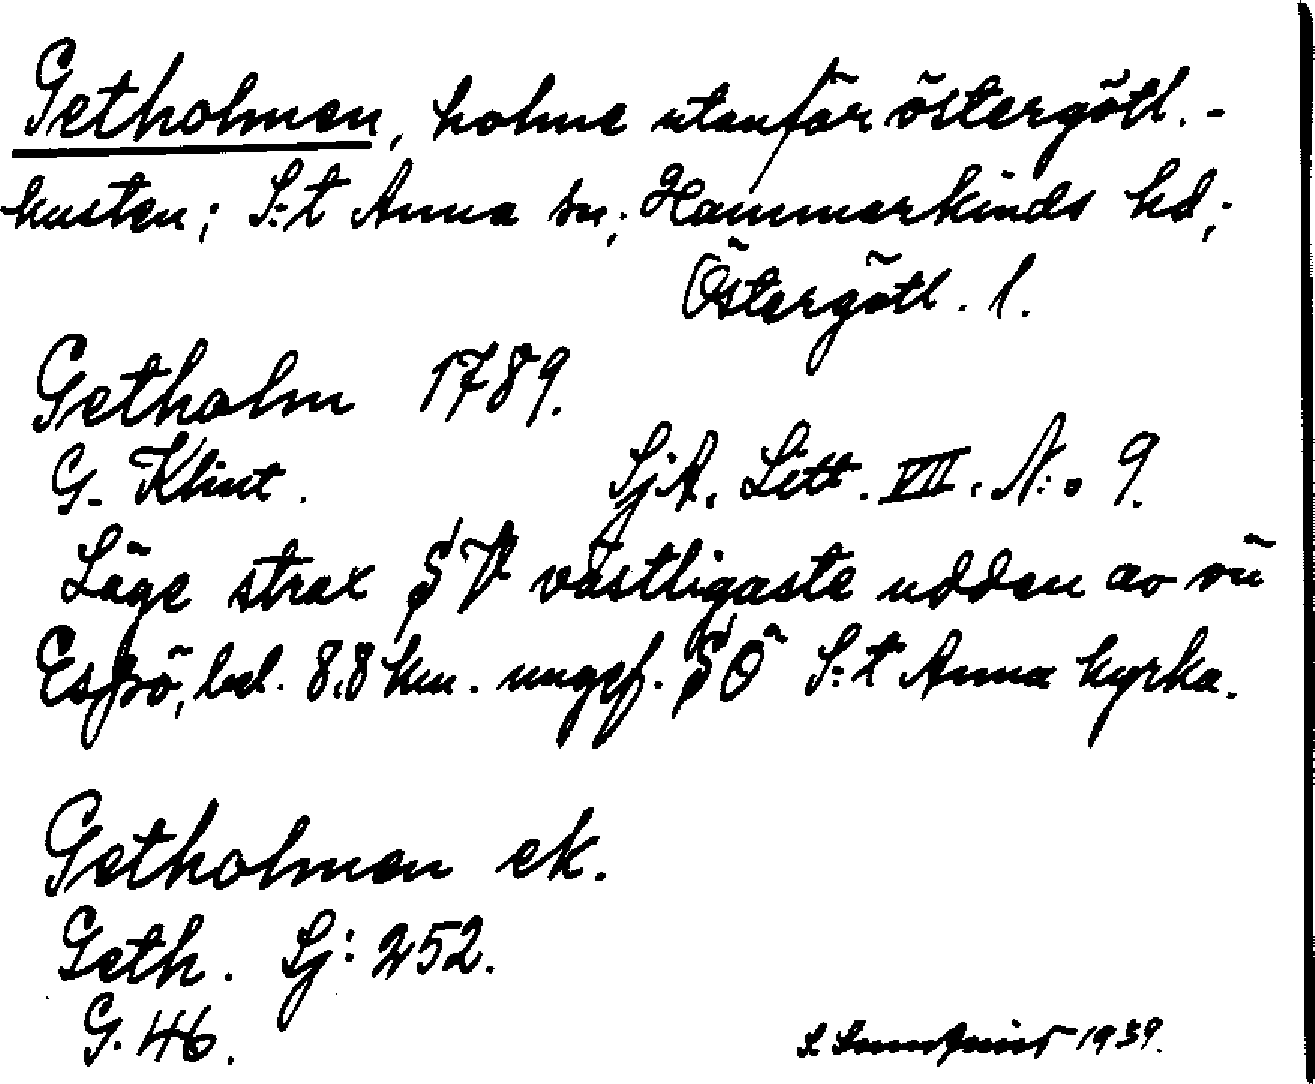 Getholmen, holme utanför östergötl.-
kusten; S:t Anna sn; Hammarkinds hd;
Östergötl. l.
Getholm 1789.
G. Klint. SjA. Litt. VII. N:o 9.
Läge strax SV västligaste udden av ön
Espö, bel. 8,8 km. ungef. SÖ S:t Anna kyrka.
Getholmen ek.
Geth. Sj: 252.
G. 46.
S. 1939.